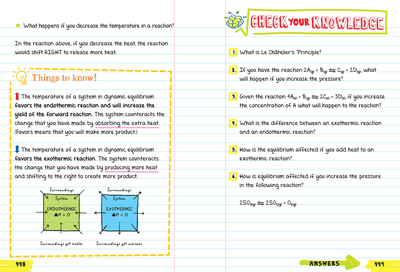 What happens if you decrease the temperature in a reaction?
In the reaction above, if you decrease the heat, the reaction
would shift RIGHT to release more heat.
Things to know!
The temperature of a system in dynamic equilibrium
favors the endothermic reaction and will increase the
yield of the forward reaction. The system counteracts
the change that you have made by absorbing the extra heat.
(Favors means that you will make more product.)
The temperature of a system in dynamic equilibrium
favors the exothermic reaction. The system counteracts
the change that you have made by producing more heat
and shifting to the right to create more product.
Surroundings
System
ENDOTHERMIC
ΔH > 0
Surroundings get cooler
Surroundings
System
EXOTHERMIC
ΔH < 0
Surroundings get warmer
448
CHECK YOUR KNOWLEDGE
1. What is Le Châtelier's Principle?
2. If you have the reaction 2A(g) + B(g) ⇌ C(g) + 2D(g), what
will happen if you increase the pressure?
3. Given the reaction 4A(s) + B(g) ⇌ 2C(s) + 3D(s), if you increase
the concentration of A what will happen to the reaction?
4. What is the difference between an exothermic reaction
and an endothermic reaction?
5. How is equilibrium affected if you add heat to an
exothermic reaction?
6. How is equilibrium affected if you increase the pressure
in the following reaction?
ANSWERS
449